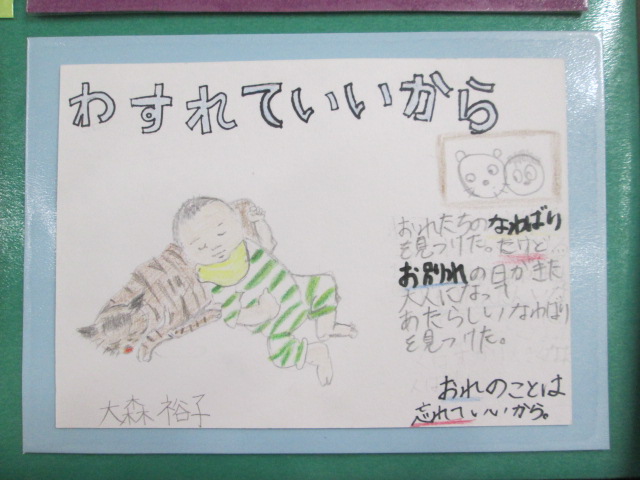 わすれていいから
おれたちのなわばり
を見つけた。だけど…
お別れの日がきた
大人になって
あたらしいなわばり
を見つけた。
おれのことは
忘れていいから。
大森 裕子